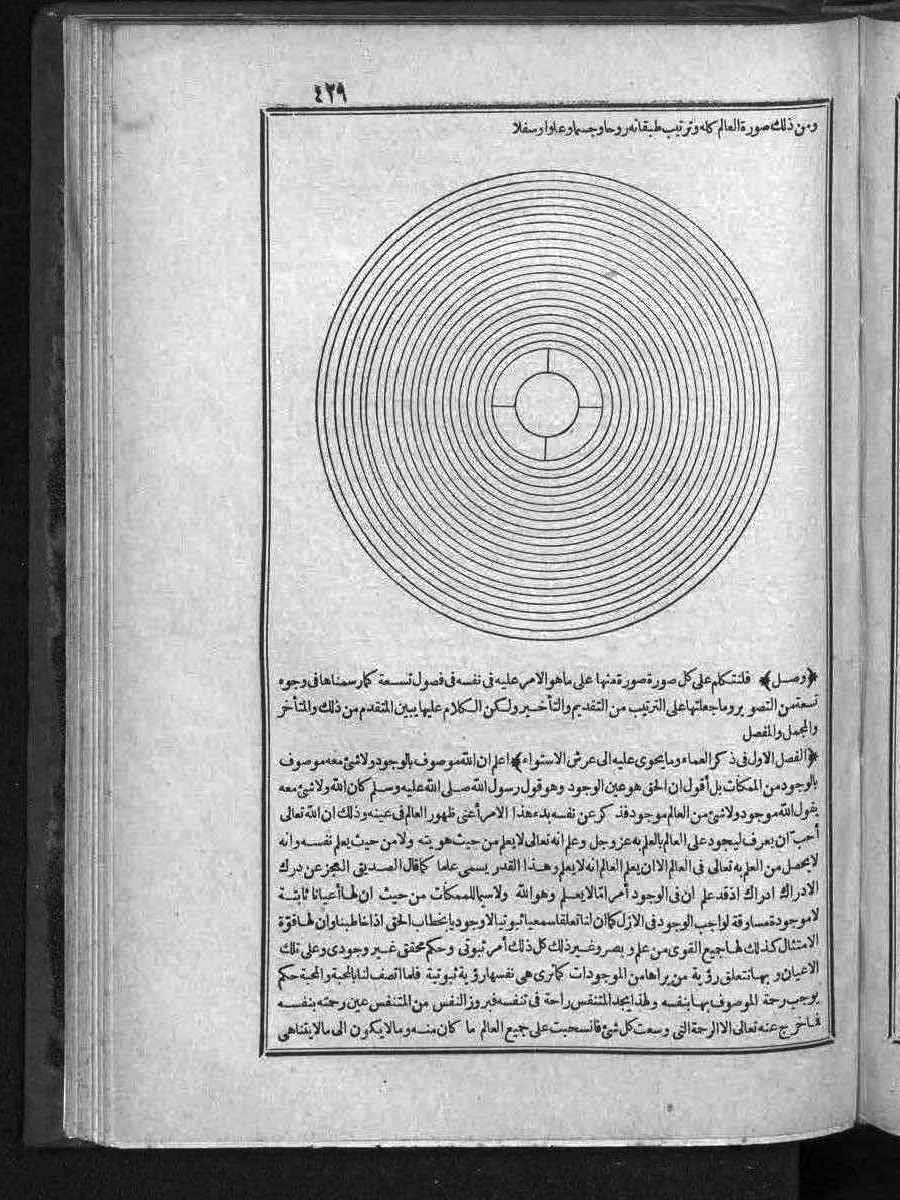 ٤٢٩
ومن ذلك صورة العالم كله وترتيب طبقاته روحا وجسما وعلوا وسفلا
﴿وصل﴾ فلنتكلم على كل صورة صورة منها على ما هو الامر عليه في نفسه في فصول تسعة كما رسمناها في وجوه
تسعة من التصوير وما جعلتها على الترتيب من التقديم والتأخير ولكن الكلام عليها يبين المتقدم من ذلك والمتأخر
والمجمل والمفصل
﴿الفصل الاول في ذكر العماء وما يحوى عليه الى عرش الاستواء﴾ اعلم ان الله موصوف بالوجود ولا شئ معه موصوف
بالوجود من الممكنات بل أقول ان الحق هو عين الوجود وهو قول رسول الله صلى الله عليه وسلم كان الله ولا شئ معه
يقول الله موجود ولا شئ من العالم موجود فذكر عن نفسه بدء هذا الامر أعنى ظهور العالم في عينه وذلك ان الله تعالى
أحب ان يعرف ليجود على العالم بالعلم به عز وجل وعلم انه تعالى لا يعلم من حيث هويته ولا من حيث يعلم نفسه وانه
لا يحصل من العلم به تعالى في العالم الا ان يعلم العالم انه لا يعلم وهذا القدر يسمى علما كما قال الصديق العجز عن درك
الادراك ادراك اذ قد علم ان في الوجود أمرا ما لا يعلم وهو الله ولا سيما للممكنات من حيث ان لها أعيانا ثابتة
لا موجودة مساوقة لواجب الوجود في الازل كما ان لنا تعلقا سمعيا ثبوتيا لا وجوديا بخطاب الحق اذا خاطبنا وان لها قوة
الامتثال كذلك لها جميع القوى من علم وبصر وغير ذلك كل ذلك أمر ثبوتى وحكم محقق غير وجودى وعلى تلك
الاعيان وبها تتعلق رؤية من يراها من الموجودات كما ترى هي نفسها رؤية ثبوتية فلما اتصف لنا بالمحبة والمحبة حكم
يوجب رحمة الموصوف بها بنفسه ولهذا يجد المتنفس راحة في تنفسه فبروز النفس من المتنفس عين رحمته بنفسه
فما خرج عنه تعالى الا الرحمة التي وسعت كل شئ فانسحبت على جميع العالم ما كان منه وما لا يكون الى ما لا يتناهى